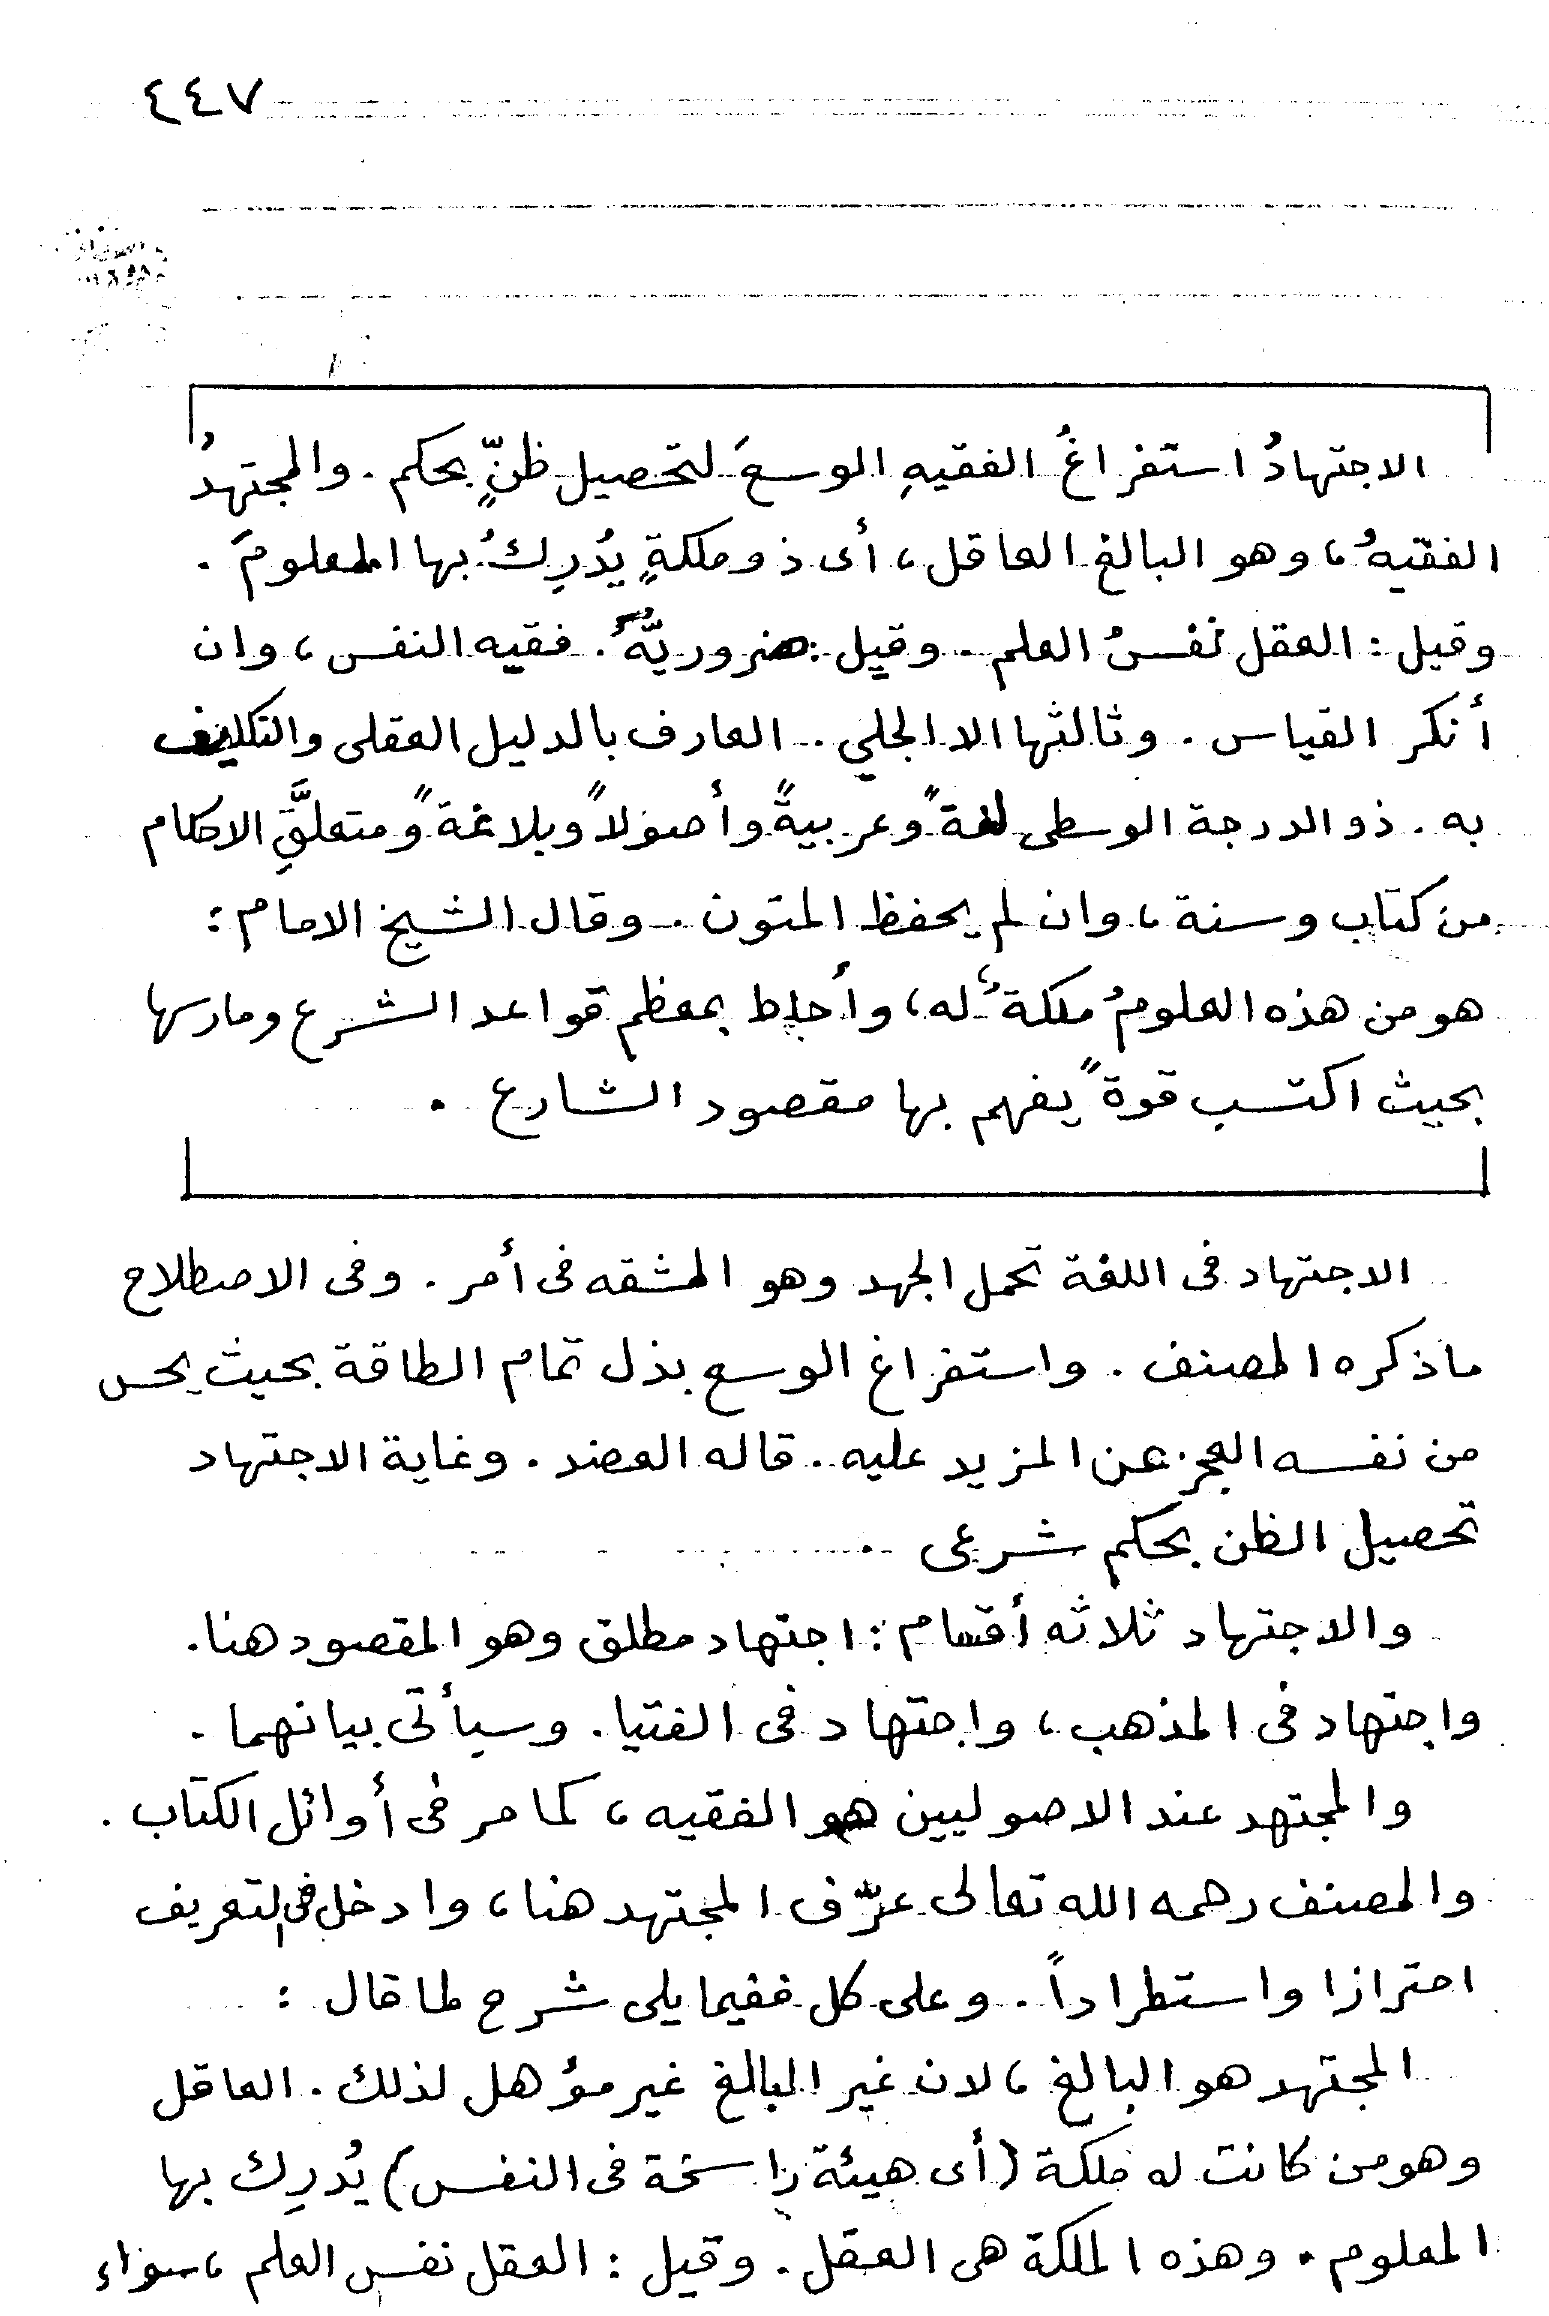 ٤٤٧
الاجتهادُ استفراغُ الفقيهِ الوسعَ لتحصيل ظنٍّ بحكم. والمجتهدُ
الفقيهُ، وهو البالغ العاقل، أى ذو ملكةٍ يُدرِكُ بها المعلومَ.
وقيل: العقل نَفْسُ العلم. وقيل: ضروريّهُ. فقيه النفس، وان
أنكر القياس. وثالثها الا الجلي. العارف بالدليل العقلى والتكليف
به. ذو الدرجة الوسطى لغةً وعربيةً وأصولاً وبلاغةً ومتعلَّقِ الاحكام
من كتاب وسنة، وان لم يحفظ المتون. وقال الشيخ الامام:
هو من هذه العلومُ ملكةٌ له، وأحاط بمعظم قواعد الشرع ومارسها
بحيث اكتسب قوةً يفهم بها مقصود الشارع.
الاجتهاد فى اللغة تحمل الجهد وهو المشقه فى أمر. وفى الاصطلاح
ماذكره المصنف. واستفراغ الوسع بذل تمام الطاقة بحيث يحس
من نفسه العجز عن المزيد عليه. قاله العضد. وغاية الاجتهاد
تحصيل الظن بحكم شرعى.
والاجتهاد ثلاثه أقسام: اجتهاد مطلق وهو المقصود هنا.
واجتهاد فى المذهب، واجتهاد فى الفتيا. وسيأتى بيانهما.
والمجتهد عند الاصوليين هو الفقيه، كما مر فى أوائل الكتاب.
والمصنف رحمه الله تعالى عرّف المجتهد هنا، وادخل فى التعريف
احترازا واستطراداً. وعلى كل ففيما يلى شرح لما قال:
المجتهد هو البالغ، لان غير البالغ غير مؤهل لذلك. العاقل
وهو من كانت له ملكة (أى هيئة راسخة فى النفس) يُدرِك بها
المعلوم. وهذه الملكة هى العقل. وقيل: العقل نفس العلم، سواء